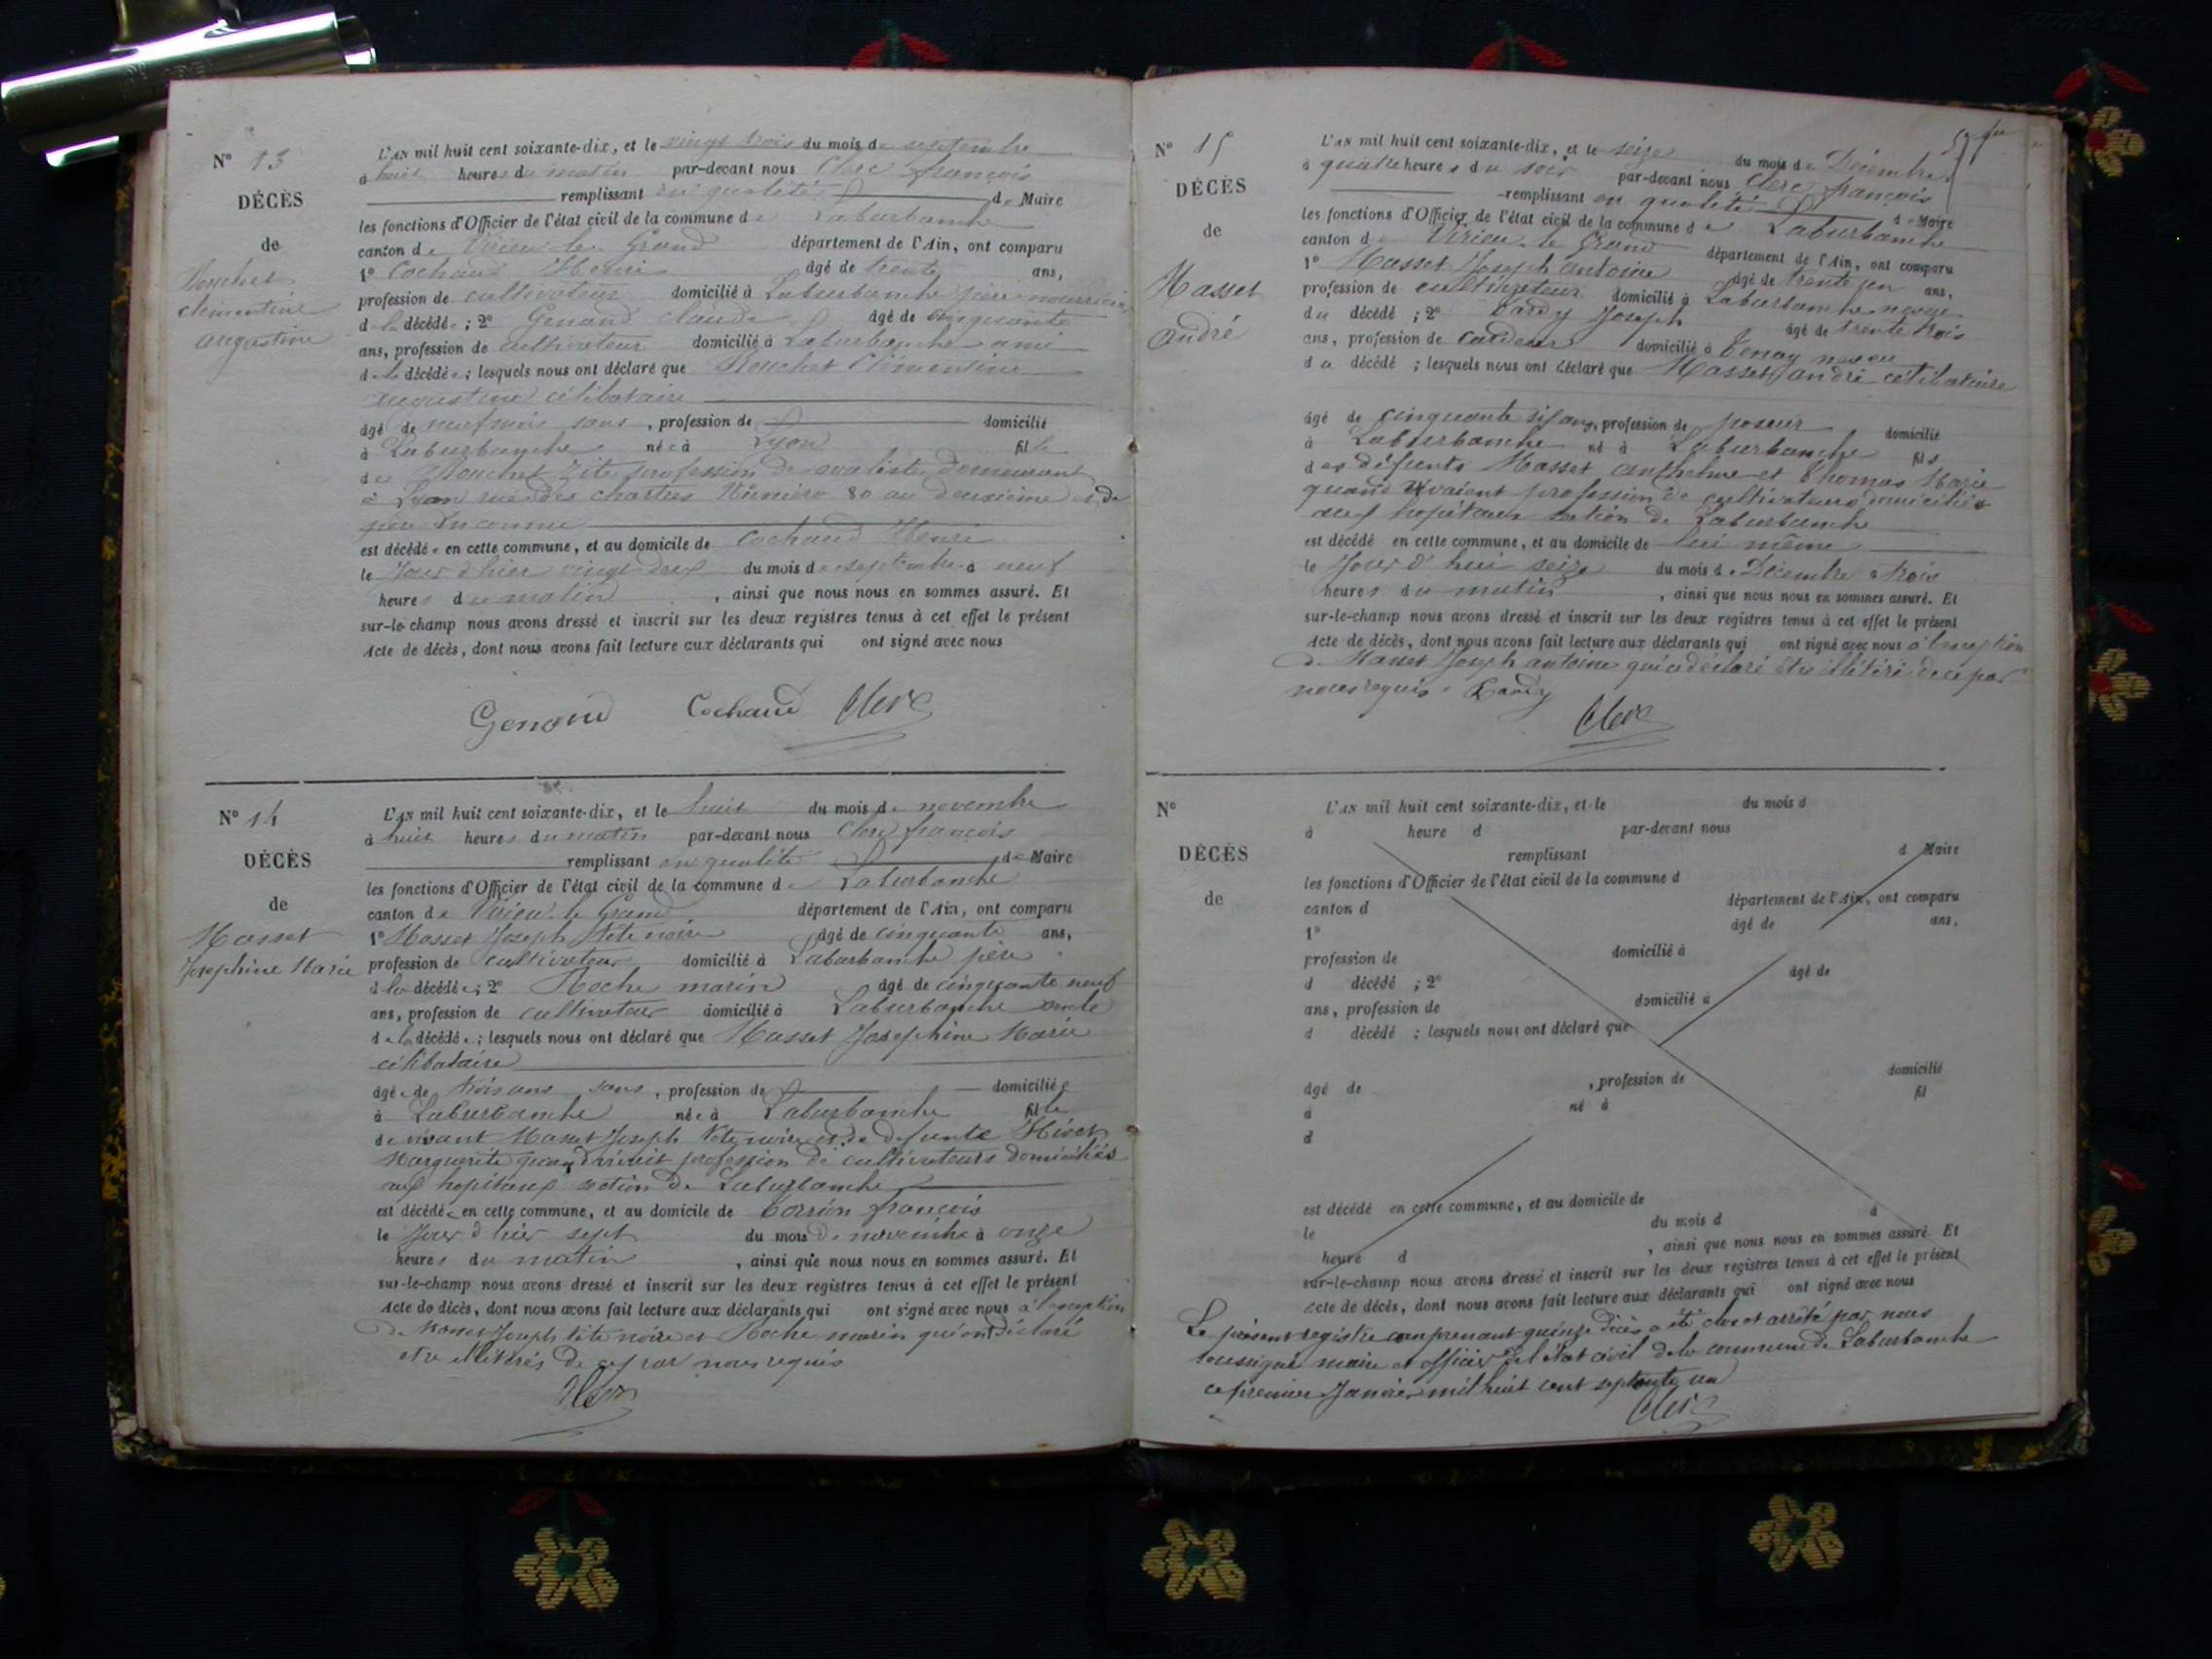 N° 13
DÉCÈS
de
clémentine
augustine
L'AN mil huit cent soixante-dix, et le vingt trois du mois de septembre
à huit heures du matin par-devant nous Clerc françois
remplissant en qualité de Maire
les fonctions d'Officier de l'état civil de la commune de Laburbanche
canton de Virieu le Grand département de l'Ain, ont comparu
1° Cochaud Henri âgé de trente ans,
profession de cultivateur domicilié à Laburbanche père nourricier
de la décédée ; 2° Genand claude âgé de cinquante
ans, profession de cultivateur domicilié à Laburbanche ami
de la décédée ; lesquels nous ont déclaré que Clémentine
augustine célibataire
âgé de neuf mois sans , profession de domicilié
à Laburbanche née à Lyon fille
de Zite profession de demeurant
à Lyon rue des chartres Numéro 80 au deuxième et de
père inconnu
est décédée en cette commune, et au domicile de Cochaud Henri
le Jour d'hier vingt deux du mois de septembre à neuf
heures du matin , ainsi que nous nous en sommes assuré. Et
sur-le-champ nous avons dressé et inscrit sur les deux registres tenus à cet effet le présent
Acte de décès, dont nous avons fait lecture aux déclarants qui ont signé avec nous
Genand Cochaud Clerc
N° 14
DÉCÈS
de
Masset
Josephine Marie
L'AN mil huit cent soixante-dix, et le huit du mois de novembre
à huit heures du matin par-devant nous Clerc françois
remplissant en qualité de Maire
les fonctions d'Officier de l'état civil de la commune de Laburbanche
canton de Virieu le Grand département de l'Ain, ont comparu
1° Masset Joseph tête noire âgé de cinquante ans,
profession de cultivateur domicilié à Laburbanche père
de la décédée ; 2° Roche marin âgé de cinquante neuf
ans, profession de cultivateur domicilié à Laburbanche oncle
de la décédée ; lesquels nous ont déclaré que Masset Josephine Marie
célibataire
âgée de trois ans sans , profession de domiciliée
à Laburbanche née à Laburbanche fille
de vivant Masset Joseph tete noire et de defunte
Marguerite quand vivait profession de cultivateurs domiciliés
aux hopitaux section de Laburbanche
est décédée en cette commune, et au domicile de françois
le Jour d'hier sept du mois de novembre à onze
heures du matin , ainsi que nous nous en sommes assuré. Et
sur-le-champ nous avons dressé et inscrit sur les deux registres tenus à cet effet le présent
Acte de décès, dont nous avons fait lecture aux déclarants qui ont signé avec nous à l'exception
de Masset Joseph tête noire et Roche marin qui ont déclaré
etre illitérés de ce par nous requis
Clerc
N° 15
DÉCÈS
de
Masset
andré
L'AN mil huit cent soixante-dix, et le seize du mois de Décembre
à quatre heures du soir par-devant nous Clerc françois
remplissant en qualité de Maire
les fonctions d'Officier de l'état civil de la commune de Laburbanche
canton de Virieu le Grand département de l'Ain, ont comparu
1° Masset Joseph antoine âgé de trente un ans,
profession de cultivateur domicilié à Laburbanche neveu
du décédé ; 2° Joseph âgé de trente trois
ans, profession de cardeur domicilié à Tenay neveu
du décédé ; lesquels nous ont déclaré que Masset andré célibataire
âgé de cinquante six ans, profession de poseur domicilié
à Laburbanche né à Laburbanche fils
des défunts Masset anthelme et Thomas Marie
quand vivaient profession de cultivateurs domiciliés
aux hopitaux section de Laburbanche
est décédé en cette commune, et au domicile de lui même
le Jour d'hui seize du mois de Décembre à trois
heures du matin , ainsi que nous nous en sommes assuré. Et
sur-le-champ nous avons dressé et inscrit sur les deux registres tenus à cet effet le présent
Acte de décès, dont nous avons fait lecture aux déclarants qui ont signé avec nous à l'exception
de Masset Joseph antoine qui a déclaré être illitéré de ce par
nous requis
Clerc
N°
DÉCÈS
de
L'AN mil huit cent soixante-dix, et le du mois d
à heure d par-devant nous
remplissant d Maire
les fonctions d'Officier de l'état civil de la commune d
canton d département de l'Ain, ont comparu
1° âgé de ans,
profession de domicilié à
d décédé ; 2° âgé de
ans, profession de domicilié à
d décédé ; lesquels nous ont déclaré que
âgé de , profession de domicilié
à né à fil
d
est décédé en cette commune, et au domicile de
le du mois d à
heure d , ainsi que nous nous en sommes assuré. Et
sur-le-champ nous avons dressé et inscrit sur les deux registres tenus à cet effet le présent
Acte de décès, dont nous avons fait lecture aux déclarants qui ont signé avec nous
Le présent registre comprenant quinze décès a été clos et arrêté par nous
soussigné maire et officier de l'état civil de la commune de Laburbanche
ce premier Janvier mil huit cent septante un
Clerc